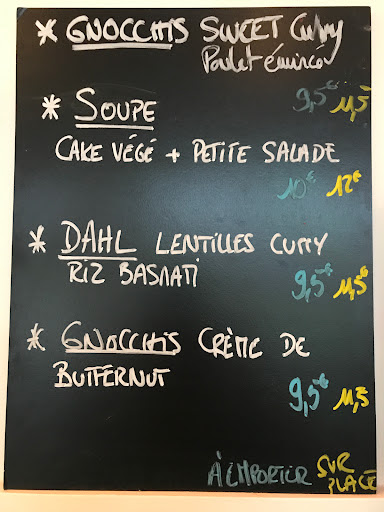 * GNOCCHIS SWEET Curry
Poulet émincé
9,5€ 11,5
* SOUPE
CAKE VÉGÉ + PETITE SALADE
10€ 12€
* DAHL LENTILLES CURRY
RIZ BASMATI
9,5€ 11,5€
* GNOCCHIS CRÈME DE
BUTTERNUT
9,5€ 11,5
À EMPORTER SUR
PLACE